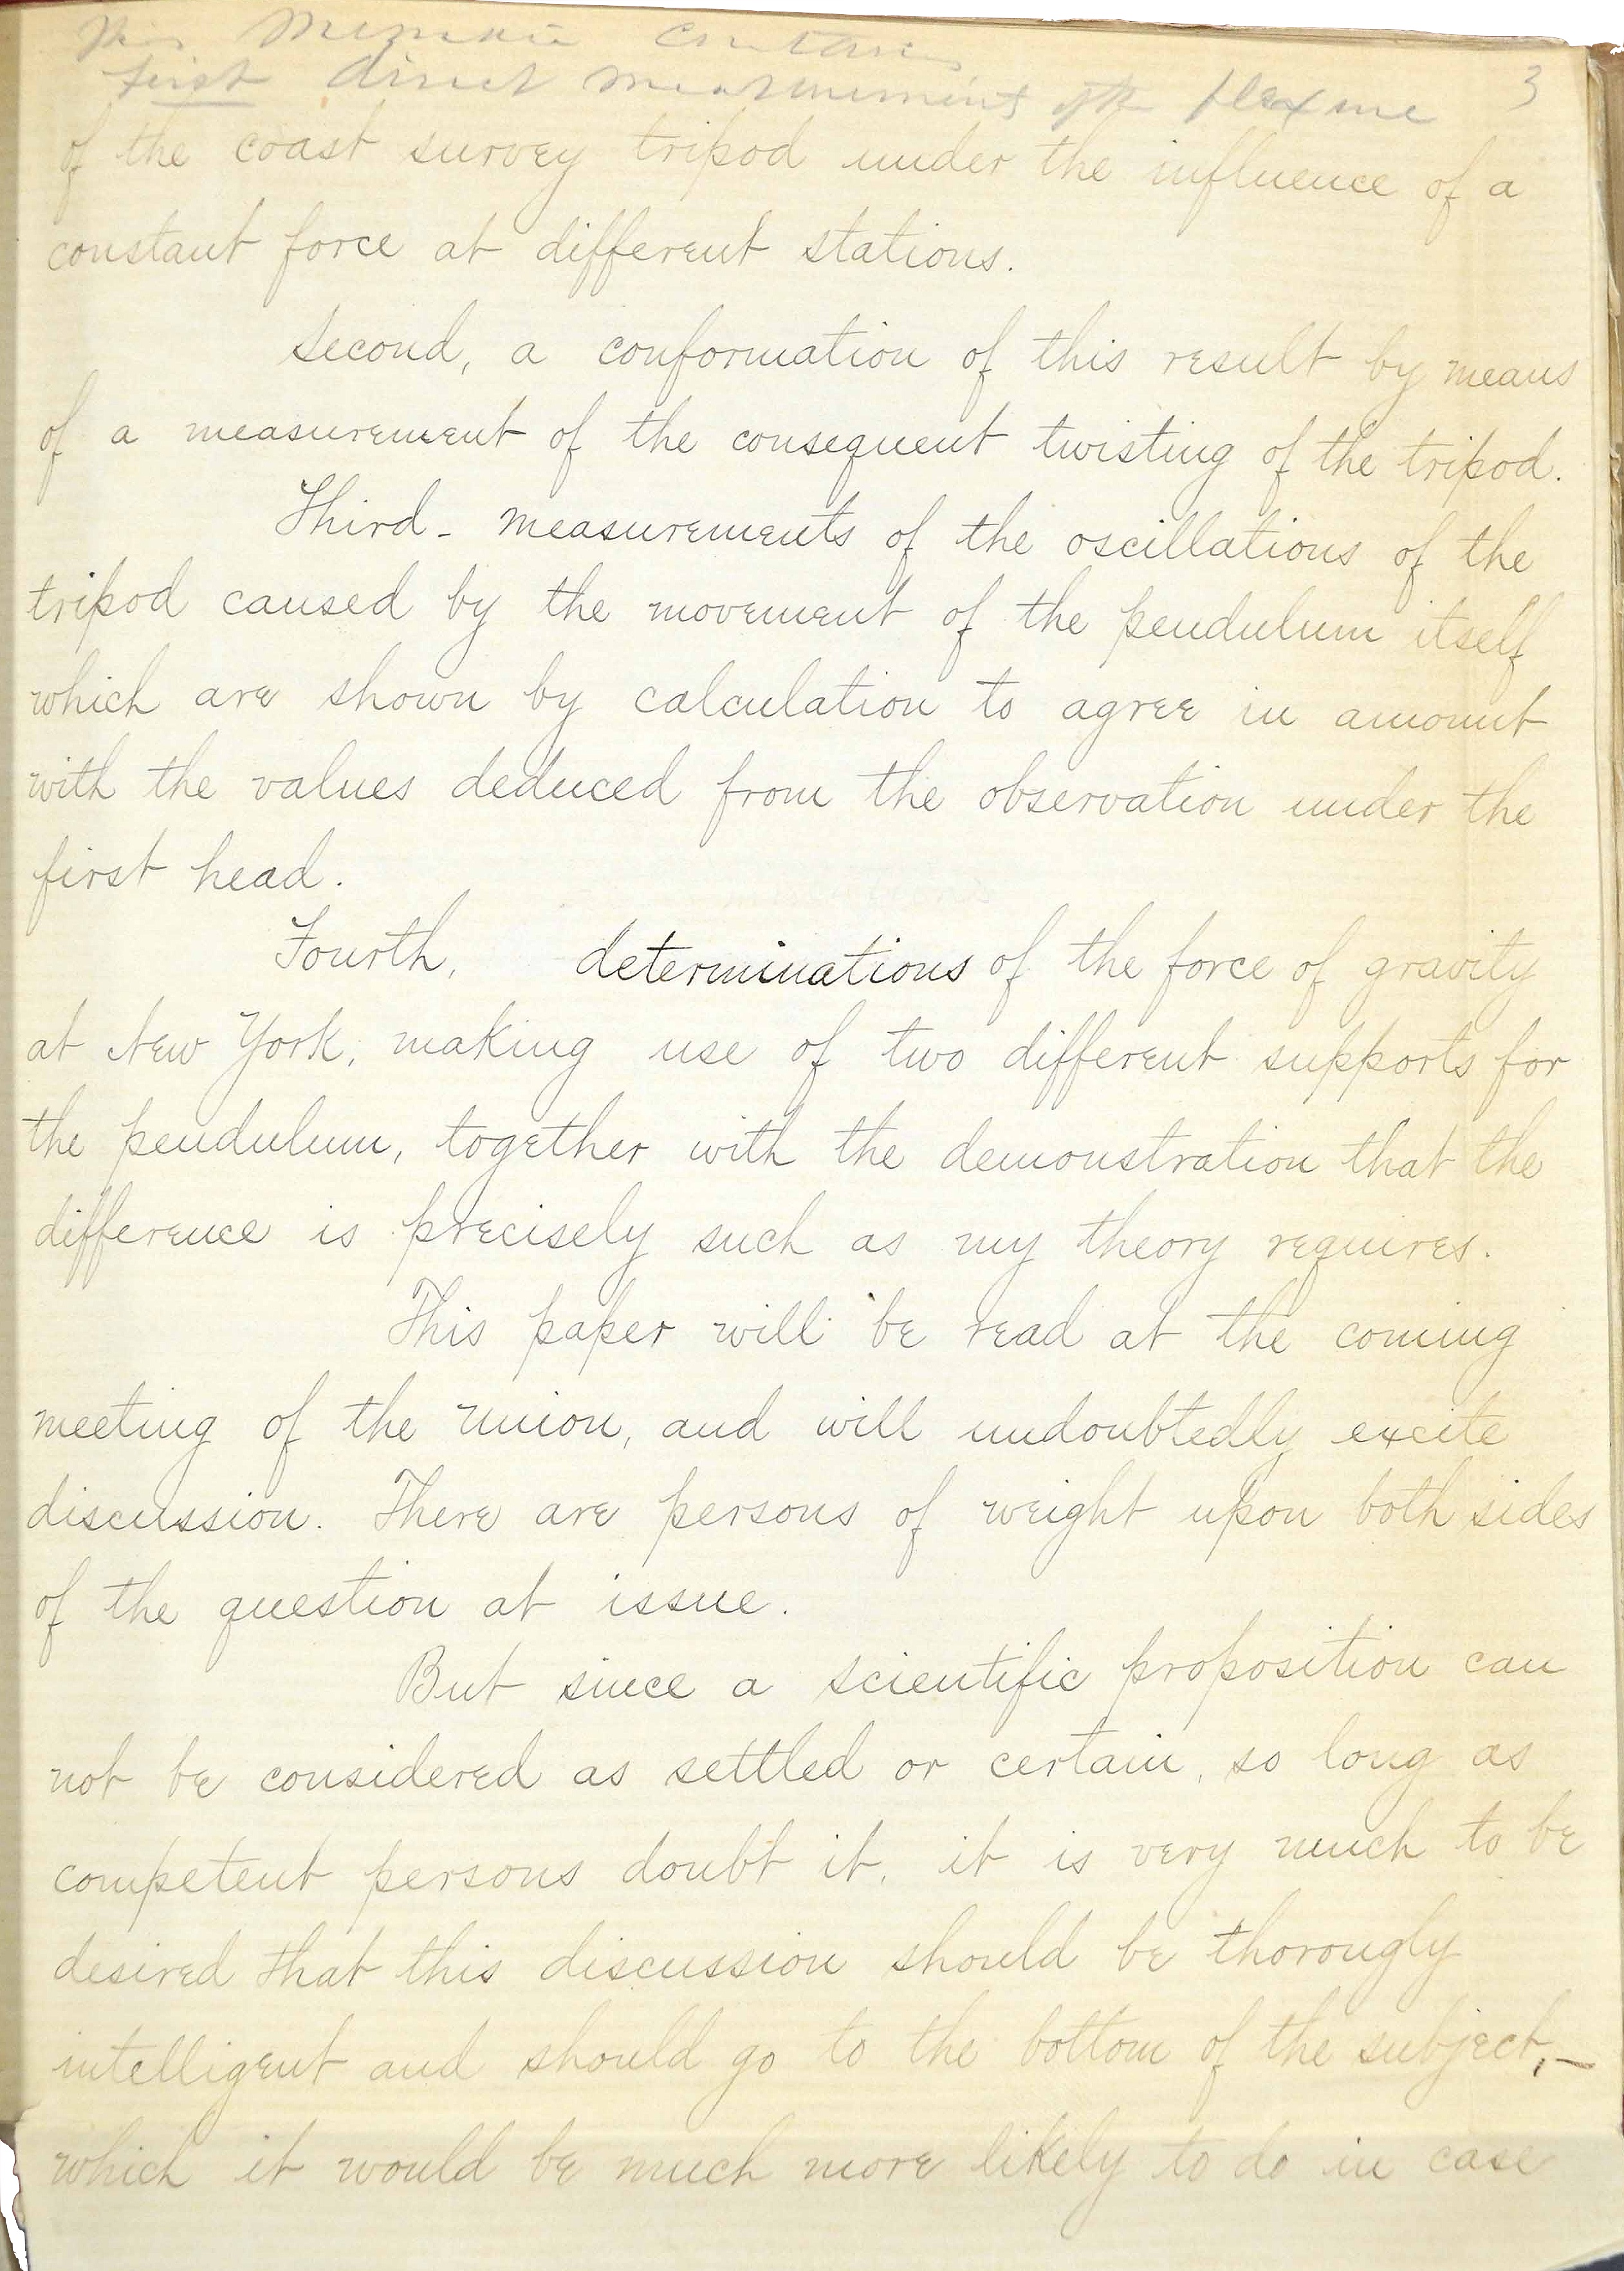 This Memoir contains
3
first direct measurement of the flexure
of the coast survey tripod under the influence of a
constant force at different stations.
Second, a conformation of this result by means
of a measurement of the consequent twisting of the tripod.
Third - measurements of the oscillations of the
tripod caused by the movement of the pendulum itself
which are shown by calculation to agree in amount
with the values deduced from the observation under the
first head.
Fourth, determinations of the force of gravity
at New York, making use of two different supports for
the pendulum, together with the demonstration that the
difference is precisely such as my theory requires.
This paper will be read at the coming
meeting of the union, and will undoubtedly excite
discussion. There are persons of weight upon both sides
of the question at issue.
But since a scientific proposition can
not be considered as settled or certain, so long as
competent persons doubt it, it is very much to be
desired that this discussion should be thorougly
intelligent and should go to the bottom of the subject,-
which it would be much more likely to do in case